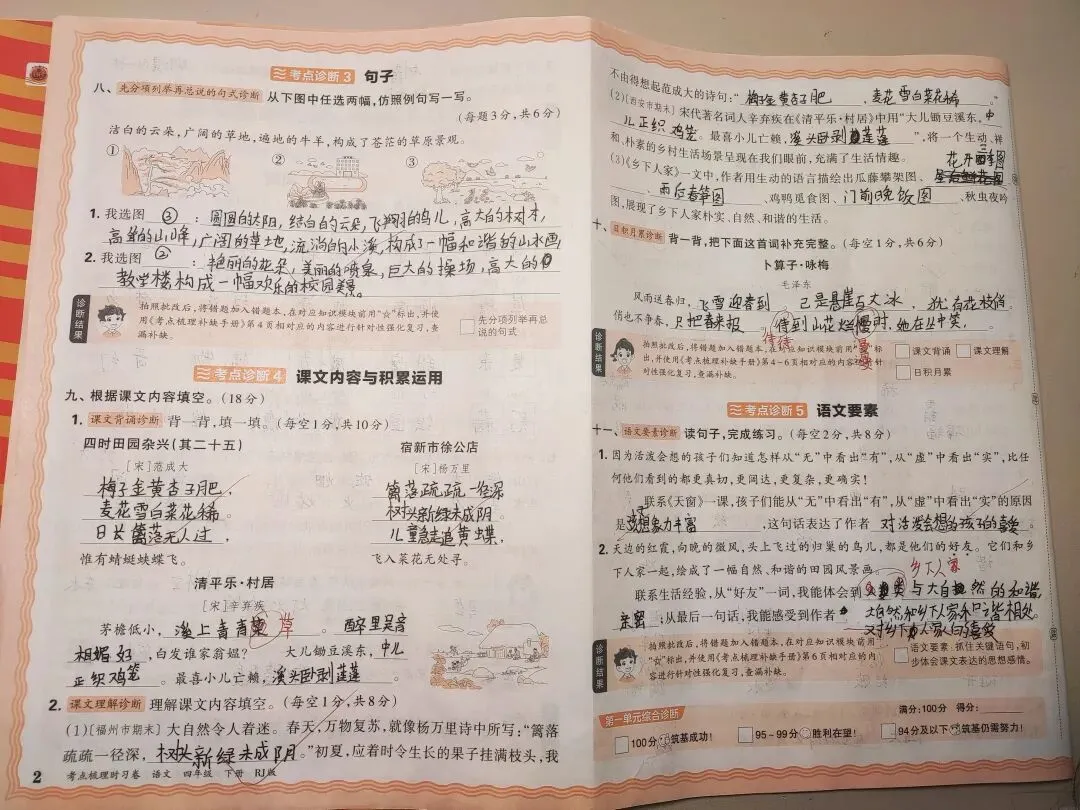 考点诊断3 句子
八、先分项列举再总说的句式诊断 从下图中任选两幅,仿照例句写一写。
(每题3分,共6分)
洁白的云朵,广阔的草地,遍地的牛羊,构成了苍茫的草原景观。
① ② ③
1. 我选图 ③ :圆圆的太阳,结白的云朵,飞翔的鸟儿,高大的树木,
高耸的山峰,广阔的草地,流淌的小溪,构成了一幅和谐的山水画
2. 我选图 ② :艳丽的花朵,美丽的喷泉,巨大的操场,高大的
教学楼构成一幅欢乐的校园美景。
诊断结果
拍照批改后,将错题加入错题本,在对应知识模块前用“☆”标出,并使
用《考点梳理补缺手册》第4页相对应的内容进行针对性强化复习,查
漏补缺。
先分项列举再总
说的句式
考点诊断4 课文内容与积累运用
九、根据课文内容填空。(18分)
1. 课文背诵诊断 背一背,填一填。(每空1分,共10分)
四时田园杂兴(其二十五)
[宋]范成大
梅子金黄杏子肥,
麦花雪白菜花稀。
日长篱落无人过,
惟有蜻蜓蛱蝶飞。
宿新市徐公店
[宋]杨万里
篱落疏疏一径深
树头新绿未成阴。
儿童急走追黄蝶,
飞入菜花无处寻。
清平乐·村居
[宋]辛弃疾
茅檐低小,溪上青青 草。醉里吴音
相媚好,白发谁家翁媪? 大儿锄豆溪东,中儿
正织鸡笼。最喜小儿亡赖,溪头卧剥莲蓬。
2. 课文理解诊断 理解课文内容填空。(每空1分,共8分)
(1)[福州市期末]大自然令人着迷。春天,万物复苏,就像杨万里诗中所写:“篱落
疏疏一径深,树头新绿未成阴。”初夏,应着时令生长的果子挂满枝头,我
2 考点梳理时习卷 语文 四年级 下册 RJ版
不由得想起范成大的诗句:“梅子金黄杏子肥,麦花雪白菜花稀。”
(2)[西安市期末]宋代著名词人辛弃疾在《清平乐·村居》中用“大儿锄豆溪东,中
儿正织鸡笼。最喜小儿亡赖,溪头卧剥莲蓬”,将一个生动、祥
和、朴素的乡村生活场景呈现在我们眼前,充满了生活情趣。
(3)《乡下人家》一文中,作者用生动的语言描绘出瓜藤攀架图、花开四季图
、雨后春笋图、鸡鸭觅食图、门前晚饭图、秋虫夜吟
图,展现了乡下人家朴实、自然、和谐的生活。
十、日积月累诊断 背一背,把下面这首词补充完整。(每空1分,共6分)
卜算子·咏梅
毛泽东
风雨送春归,飞雪迎春到。已是悬崖百丈冰,犹有花枝俏。
俏也不争春,只把春来报。待到山花烂慢时,她在丛中笑。
待待
漫
诊断结果
拍照批改后,将错题加入错题本,在对应知识模块前用“☆”标
出,并使用《考点梳理补缺手册》第4-6页相对应的内容进行针
对性强化复习,查漏补缺。
课文背诵 课文理解
日积月累
考点诊断5 语文要素
十一、语文要素诊断 读句子,完成练习。(每空2分,共8分)
1. 因为活泼会想的孩子们知道怎样从“无”中看出“有”,从“虚”中看出“实”,比任
何他们看到的都更真切,更阔达,更复杂,更确实!
联系《天窗》一课,孩子们能从“无”中看出“有”,从“虚”中看出“实”的原因
是 想象力丰富,这句话表达了作者 对活泼会想的孩子的喜爱
2. 天边的红霞,向晚的微风,头上飞过的归巢的鸟儿,都是他们的好友。它们和乡
下人家一起,绘成了一幅自然、和谐的田园风景画。
乡下人家
联系生活经验,从“好友”一词,我能体会到人类与大自然的和谐
亲密;从最后一句话,我能感受到作者 大自然和乡下人家和谐相处
对乡下人家的喜爱
诊断结果
拍照批改后,将错题加入错题本,在对应知识模块前用
“☆”标出,并使用《考点梳理补缺手册》第6页相对应的内
容进行针对性强化复习,查漏补缺。
语文要素:抓住关键语句,初
步体会课文表达的思想感情。
第一单元综合诊断
满分:100分 得分:
100分 筑基成功! 95-99分 胜利在望! 94分及以下 筑基仍需努力!